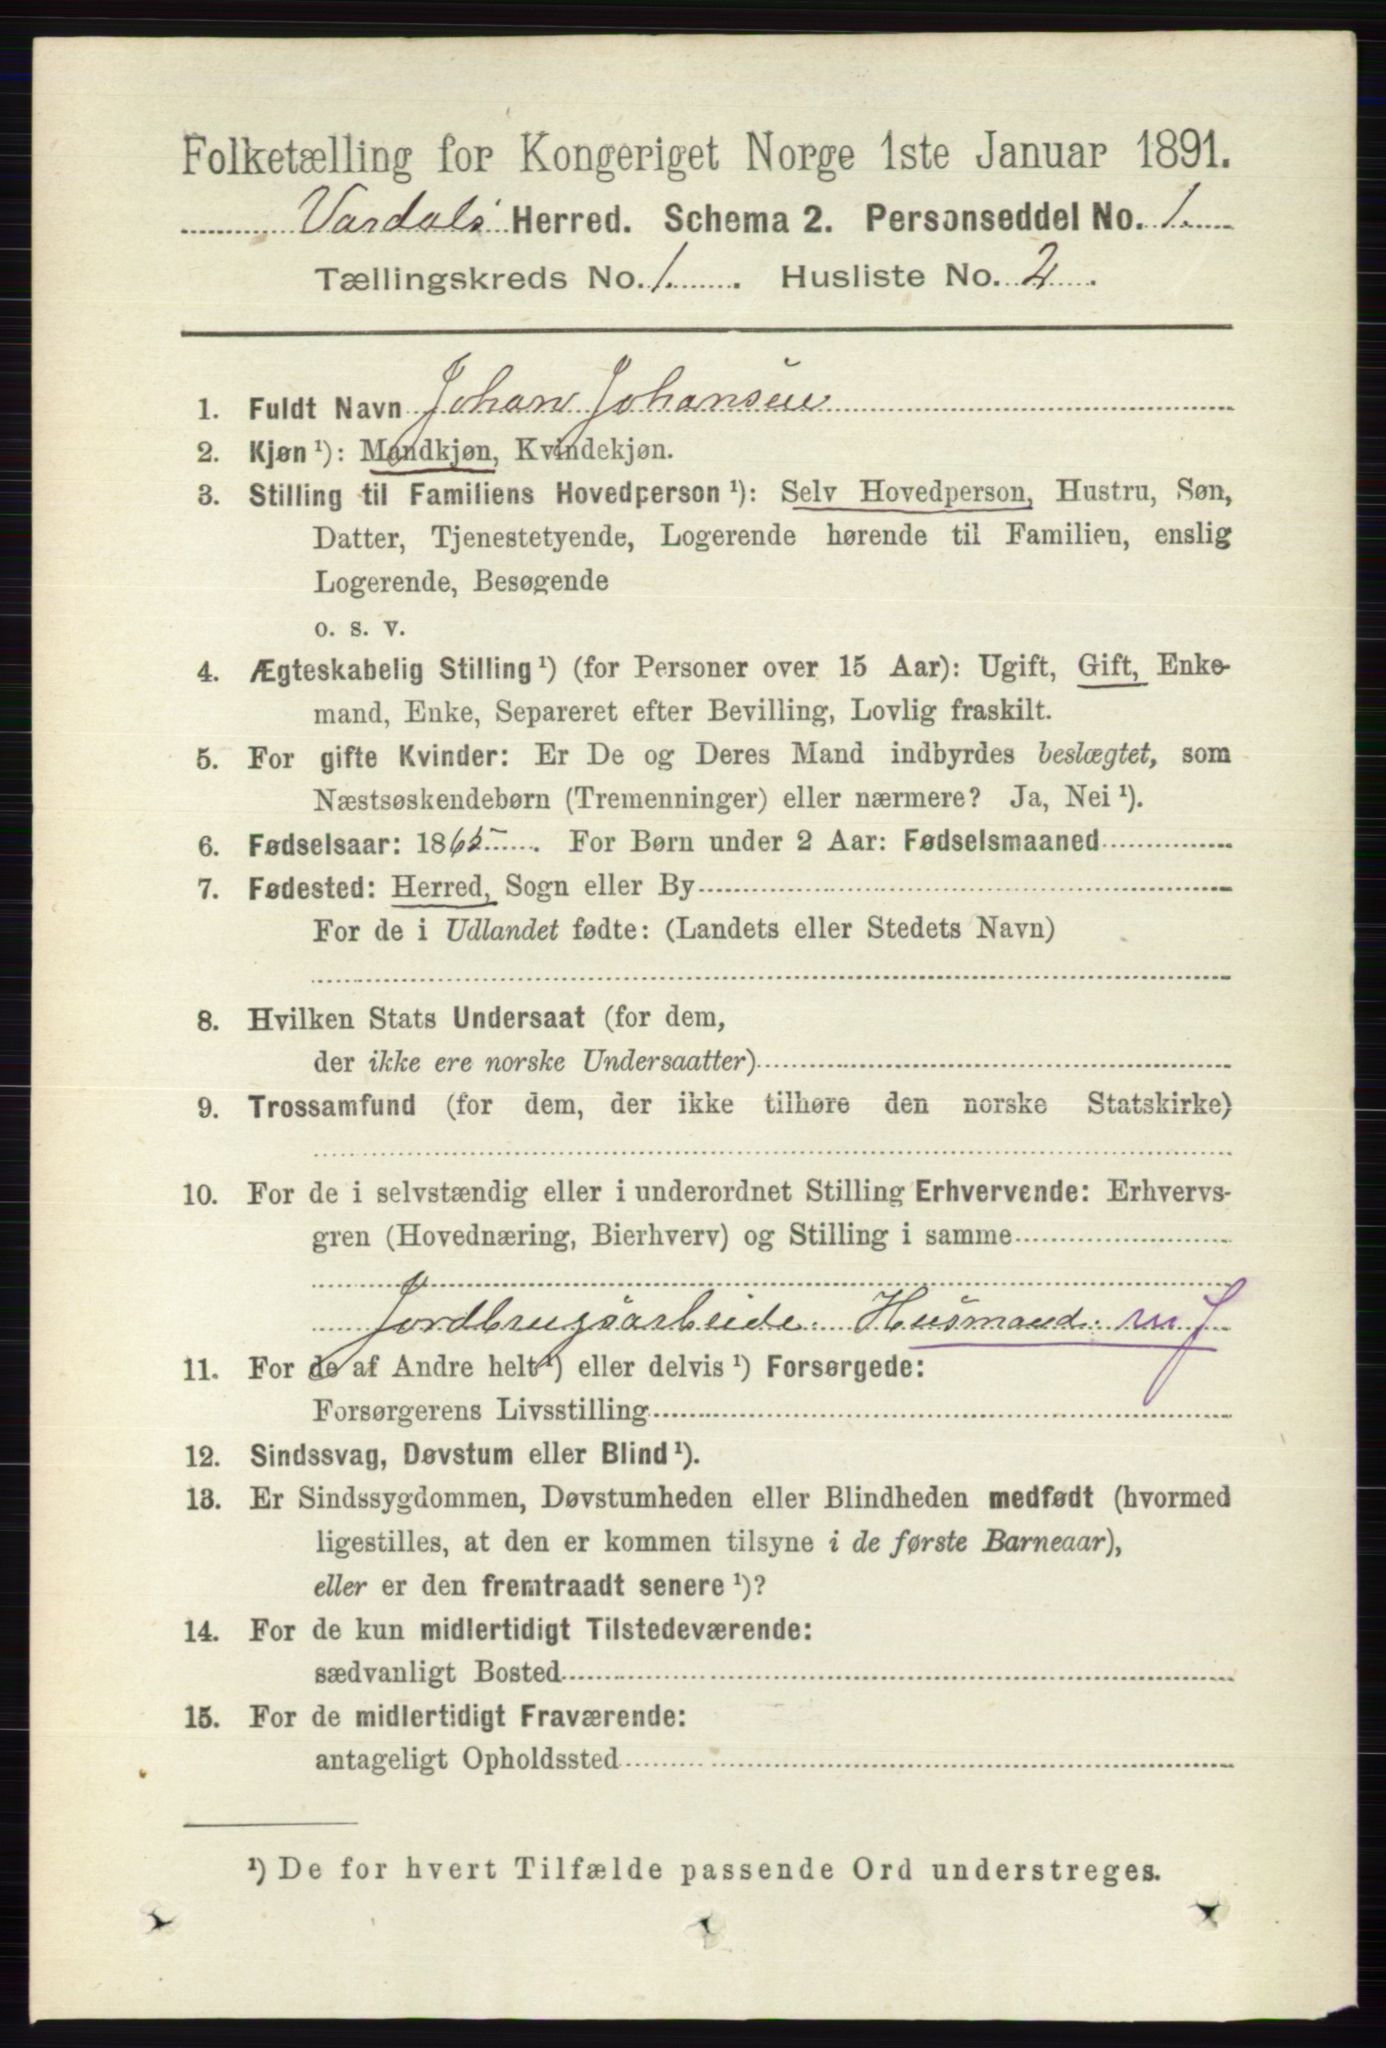 Folketælling for Kongeriget Norge 1ste Januar 1891.
Vardals Herred. Schema 2. Personseddel No. 1.
Tællingskreds No. 1. Husliste No. 2.
1. Fuldt Navn Johan Johansen
2. Kjøn ¹): Mandkjøn, Kvindekjøn.
3. Stilling til Familiens Hovedperson ¹): Selv Hovedperson, Hustru, Søn,
Datter, Tjenestetyende, Logerende hørende til Familien, enslig
Logerende, Besøgende
o. s. v.
4. Ægteskabelig Stilling ¹) (for Personer over 15 Aar): Ugift, Gift, Enke-
mand, Enke, Separeret efter Bevilling, Lovlig fraskilt.
5. For gifte Kvinder: Er De og Deres Mand indbyrdes beslægtet, som
Næstsøskendebørn (Tremenninger) eller nærmere? Ja, Nei ¹).
6. Fødselsaar: 1865. For Børn under 2 Aar: Fødselsmaaned
7. Fødested: Herred, Sogn eller By
For de i Udlandet fødte: (Landets eller Stedets Navn)
8. Hvilken Stats Undersaat (for dem,
der ikke ere norske Undersaatter)
9. Trossamfund (for dem, der ikke tilhøre den norske Statskirke)
10. For de i selvstændig eller i underordnet Stilling Erhvervende: Erhvervs-
gren (Hovednæring, Bierhverv) og Stilling i samme
Jordbrugsarbeide. Husmand. m J
11. For de af Andre helt ¹) eller delvis ¹) Forsørgede:
Forsørgerens Livsstilling
12. Sindssvag, Døvstum eller Blind ¹).
13. Er Sindssygdommen, Døvstumheden eller Blindheden medfødt (hvormed
ligestilles, at den er kommen tilsyne i de første Barneaar),
eller er den fremtraadt senere ¹)?
14. For de kun midlertidigt Tilstedeværende:
sædvanligt Bosted
15. For de midlertidigt Fraværende:
antageligt Opholdssted
¹) De for hvert Tilfælde passende Ord understreges.